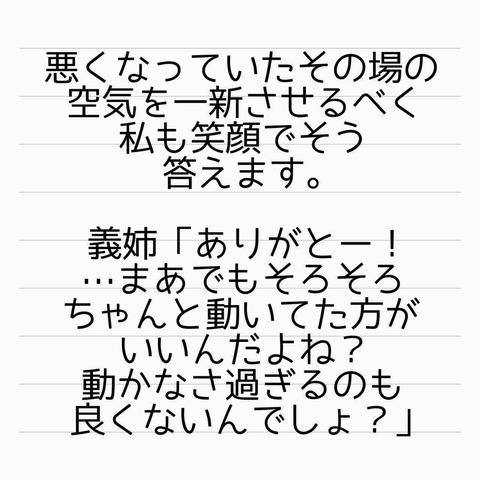 悪くなっていたその場の
空気を一新させるべく
私も笑顔でそう
答えます。
義姉「ありがとー！
…まあでもそろそろ
ちゃんと動いてた方が
いいんだよね？
動かなさ過ぎるのも
良くないんでしょ？」